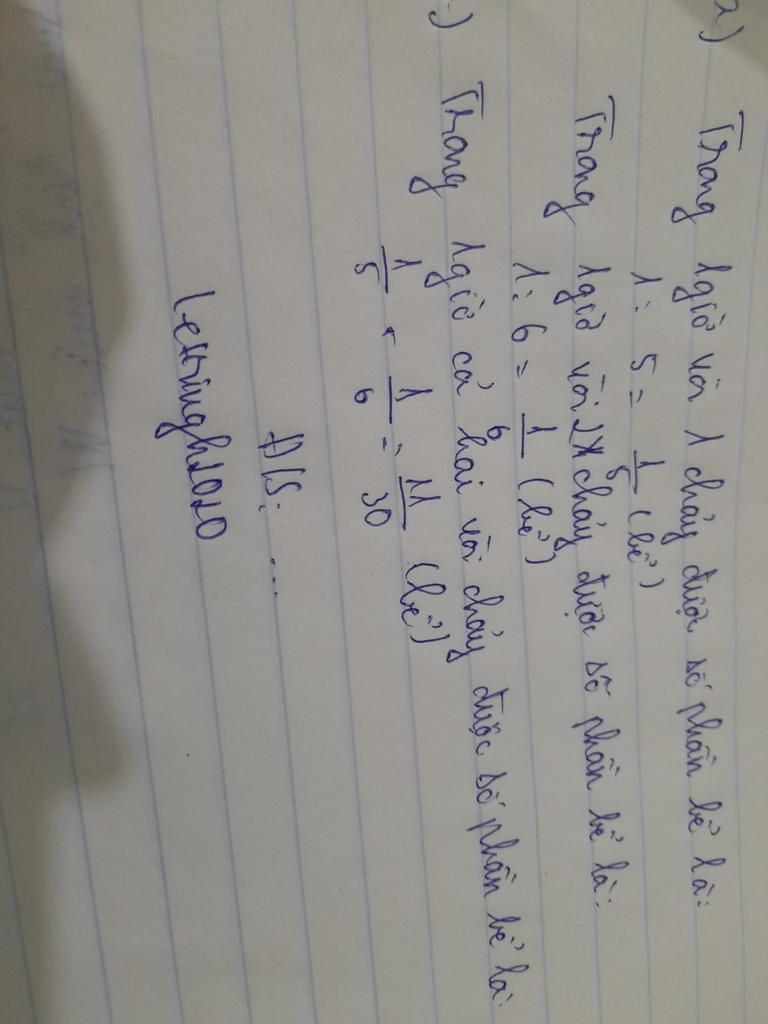 a)
Trong 1 giờ vòi 1 chảy được số phần bể là:
1 : 5 = 1/5 (bể)
Trong 1 giờ vòi 2 chảy được số phần bể là:
1 : 6 = 1/6 (bể)
Trong 1 giờ cả hai vòi chảy được số phần bể là:
1/5 + 1/6 = 11/30 (bể)
Đ/S: ...